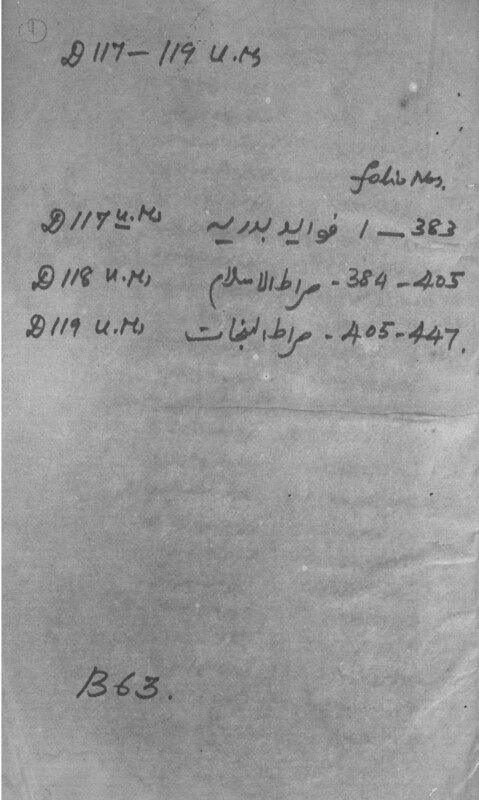 1
D 117 – 119 U.Ms
folio Nos.
D 117 U.Ms فوايد بدريه 1 – 383
D 118 U.Ms صراط الاسلام - 384 – 405
D 119 U.Ms صراط النجات - 405 – 447.
B 63.